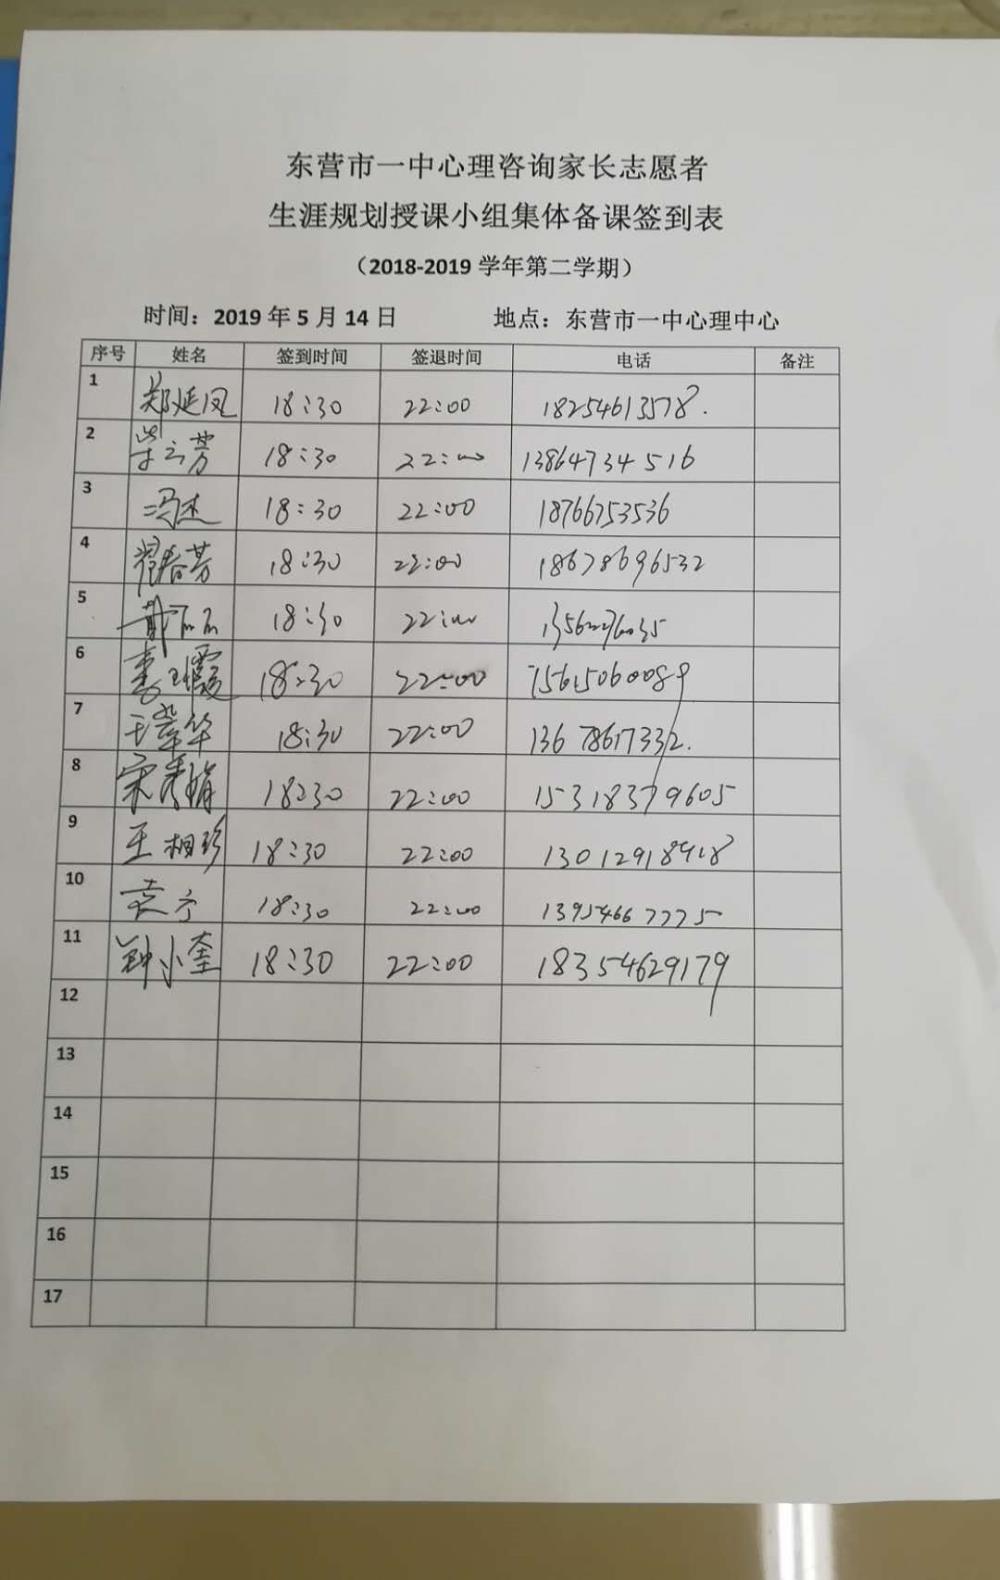 东营市一中心理咨询家长志愿者
生涯规划授课小组集体备课签到表
（2018-2019 学年第二学期）
时间：2019 年 5 月 14 日 地点：东营市一中心理中心
序号 姓名 签到时间 签退时间 电话 备注
1 郑延凤 18:30 22:00 18254613578.
2 18:30 22:00 13864734516
3 冯杰 18:30 22:00 18766753536
4 翟春芳 18:30 22:00 18678696532
5 18:30 22:00
6 18:30 22:00 15615060089
7 18:30 22:00 13678617332.
8 18:30 22:00 15318379605
9 王相珍 18:30 22:00
10 袁宁 18:30 22:00 13954667775
11 钟小奎 18:30 22:00 18354629179
12
13
14
15
16
17